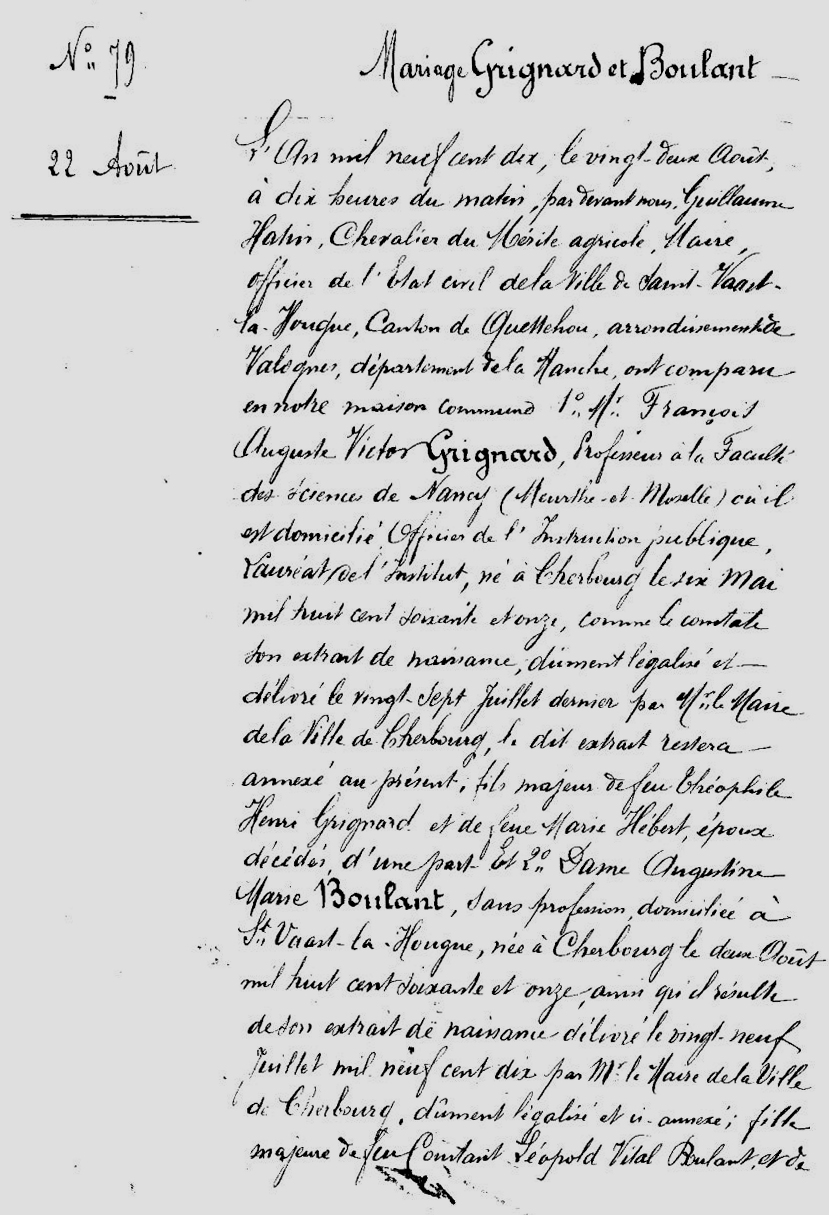 N° 79
Mariage Grignard et Boulant
22 Août
L'An mil neuf cent dix, le vingt-deux Août,
à dix heures du matin, par devant nous, Guillaume
Hatin, Chevalier du Mérite agricole, Maire,
officier de l'Etat civil de la Ville de Saint-Vaast-
la-Hougue, Canton de Quettehou, arrondissement de
Valognes, département de la Manche, ont comparu
en notre maison commune 1° Mr. François
Auguste Victor Grignard, Professeur à la Faculté
des Sciences de Nancy (Meurthe-et-Moselle) où il
est domicilié, Officier de l'Instruction publique,
Lauréat de l'Institut, né à Cherbourg le six Mai
mil huit cent soixante et onze, comme le constate
son extrait de naissance, dûment légalisé et
délivré le vingt-sept Juillet dernier par Mr. le Maire
de la Ville de Cherbourg, le dit extrait restera
annexé au présent; fils majeur de feu Théophile
Henri Grignard et de feue Marie Hébert, époux
décédés, d'une part. Et 2° Dame Augustine
Marie Boulant, sans profession, domiciliée à
St. Vaast-la-Hougue, née à Cherbourg le deux Août
mil huit cent soixante et onze, ainsi qu'il résulte
de son extrait de naissance délivré le vingt-neuf
Juillet mil neuf cent dix par Mr. le Maire de la Ville
de Cherbourg, dûment légalisé et ci-annexé; fille
majeure de feu Constant Léopold Vital Boulant, et de